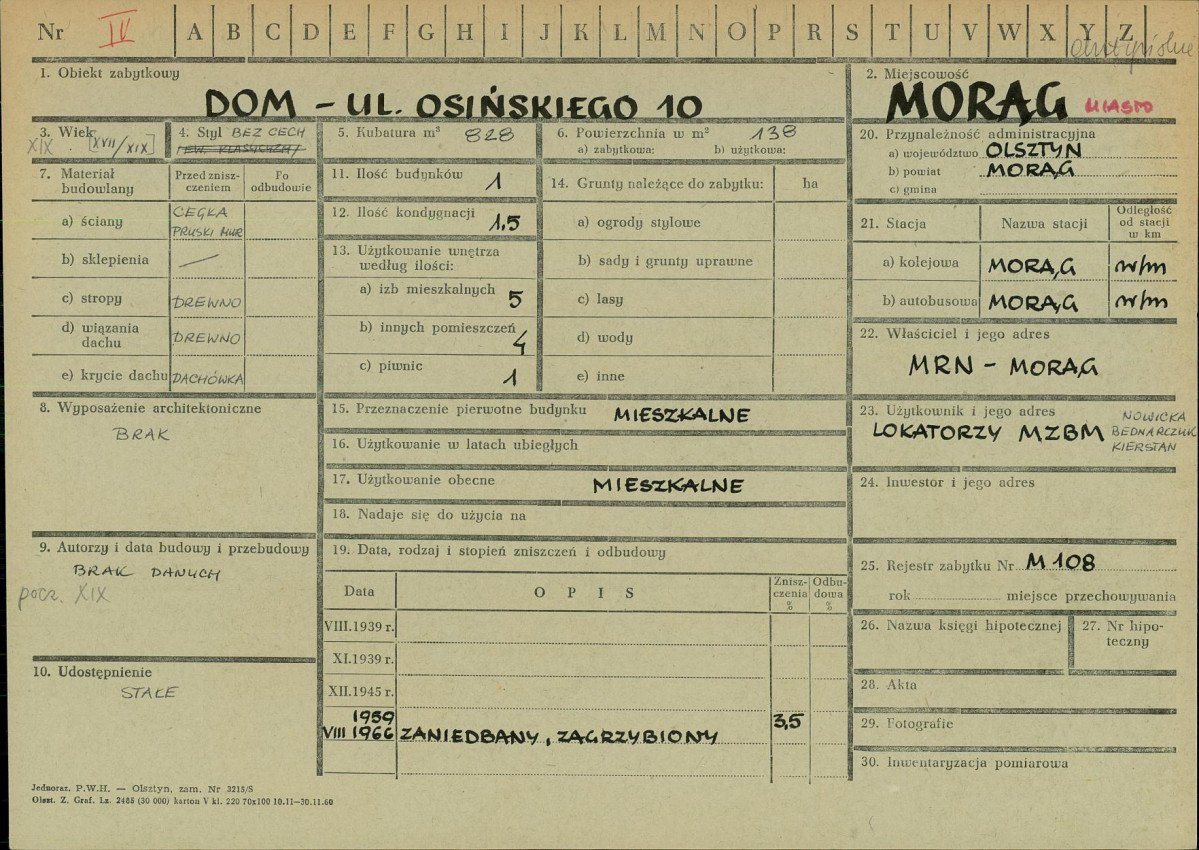 Nr IV A B C D E F G H I J K L M N O P R S T U V W X Y Z
1. Obiekt zabytkowy
DOM – UL. OSIŃSKIEGO 10
2. Miejscowość
MORĄG MIASTO
3. Wiek
XIX. [XVII/XIX]
4. Styl BEZ CECH
/EW. KLASYCYZM/
5. Kubatura m³ 828
6. Powierzchnia w m² 138
a) zabytkowa: b) użytkowa:
7. Materiał budowlany
Przed znisz-
czeniem
Po
odbudowie
a) ściany CEGŁA
PRUSKI MUR
b) sklepienia —
c) stropy DREWNO
d) wiązania
dachu DREWNO
e) krycie dachu DACHÓWKA
8. Wyposażenie architektoniczne
BRAK
9. Autorzy i data budowy i przebudowy
BRAK DANYCH
pocz. XIX
10. Udostępnienie
STAŁE
11. Ilość budynków 1
12. Ilość kondygnacji 1,5
13. Użytkowanie wnętrza
według ilości:
a) izb mieszkalnych 5
b) innych pomieszczeń 4
c) piwnic 1
14. Grunty należące do zabytku: ha
a) ogrody stylowe
b) sady i grunty uprawne
c) lasy
d) wody
e) inne
15. Przeznaczenie pierwotne budynku MIESZKALNE
16. Użytkowanie w latach ubiegłych
17. Użytkowanie obecne MIESZKALNE
18. Nadaje się do użycia na
19. Data, rodzaj i stopień zniszczeń i odbudowy
Data O P I S Znisz-
czenia
% Odbu-
dowa
%
VIII.1939 r.
XI.1939 r.
XII.1945 r.
1959 3,5
VIII 1966 ZANIEDBANY, ZAGRZYBIONY
20. Przynależność administracyjna
a) województwo OLSZTYN
b) powiat MORĄG
c) gmina
21. Stacja Nazwa stacji Odległość
od stacji
w km
a) kolejowa MORĄG w/m
b) autobusowa MORĄG w/m
22. Właściciel i jego adres
MRN – MORĄG
23. Użytkownik i jego adres
LOKATORZY MZBM NOWICKA
BEDNARCZUK
KIERSTAN
24. Inwestor i jego adres
25. Rejestr zabytku Nr M 108
rok miejsce przechowywania
26. Nazwa księgi hipotecznej
27. Nr hipo-
teczny
28. Akta
29. Fotografie
30. Inwentaryzacja pomiarowa
Jednoraz. P.W.H. — Olsztyn, zam. Nr 3215/S
Olszt. Z. Graf. Lz. 2485 (30 000) karton V kl. 220 70x100 10.11—30.11.60